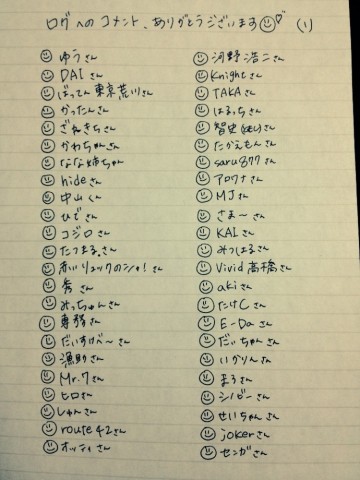 ログへのコメント、ありがとうございます (1)
ゆうさん
DAIさん
ばってん東京荒川さん
かったんさん
ざねきちさん
かわちゃんさん
なな姉ちゃん
hideさん
中山くん
ひでさん
コジロさん
たつまるさん
赤いリュックのシャ!さん
秀さん
みっちゃんさん
専務さん
だいすけべ〜さん
漁助さん
Mr.7さん
ヒロさん
しゅんさん
route42さん
オッティさん
河野浩二さん
Knightさん
TAKAさん
はるっちさん
智史さん
たかえもんさん
saru877さん
アロワナさん
MJさん
さま〜さん
KAIさん
みつはるさん
Vivid高橋さん
akiさん
たけCさん
E-Daさん
だいちゃんさん
いかりんさん
まろさん
シノビーさん
せいちゃんさん
jokerさん
センガさん